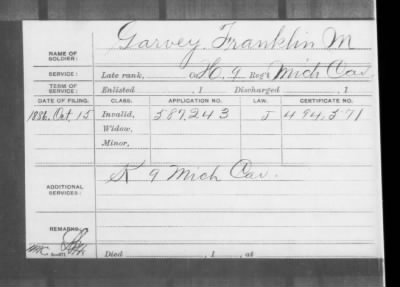 NAME OF SOLDIER: Garvey, Franklin M
SERVICE: Late rank, Co. H, 9 Reg't Mich Cav.
TERM OF SERVICE: Enlisted , 1 Discharged , 1
DATE OF FILING. CLASS. APPLICATION NO. LAW. CERTIFICATE NO.
1886, Oct. 15 Invalid, 587,243 J 494,571
Widow,
Minor,
ADDITIONAL SERVICES: K 9 Mich Cav.
REMARKS:
Died , 1 , at